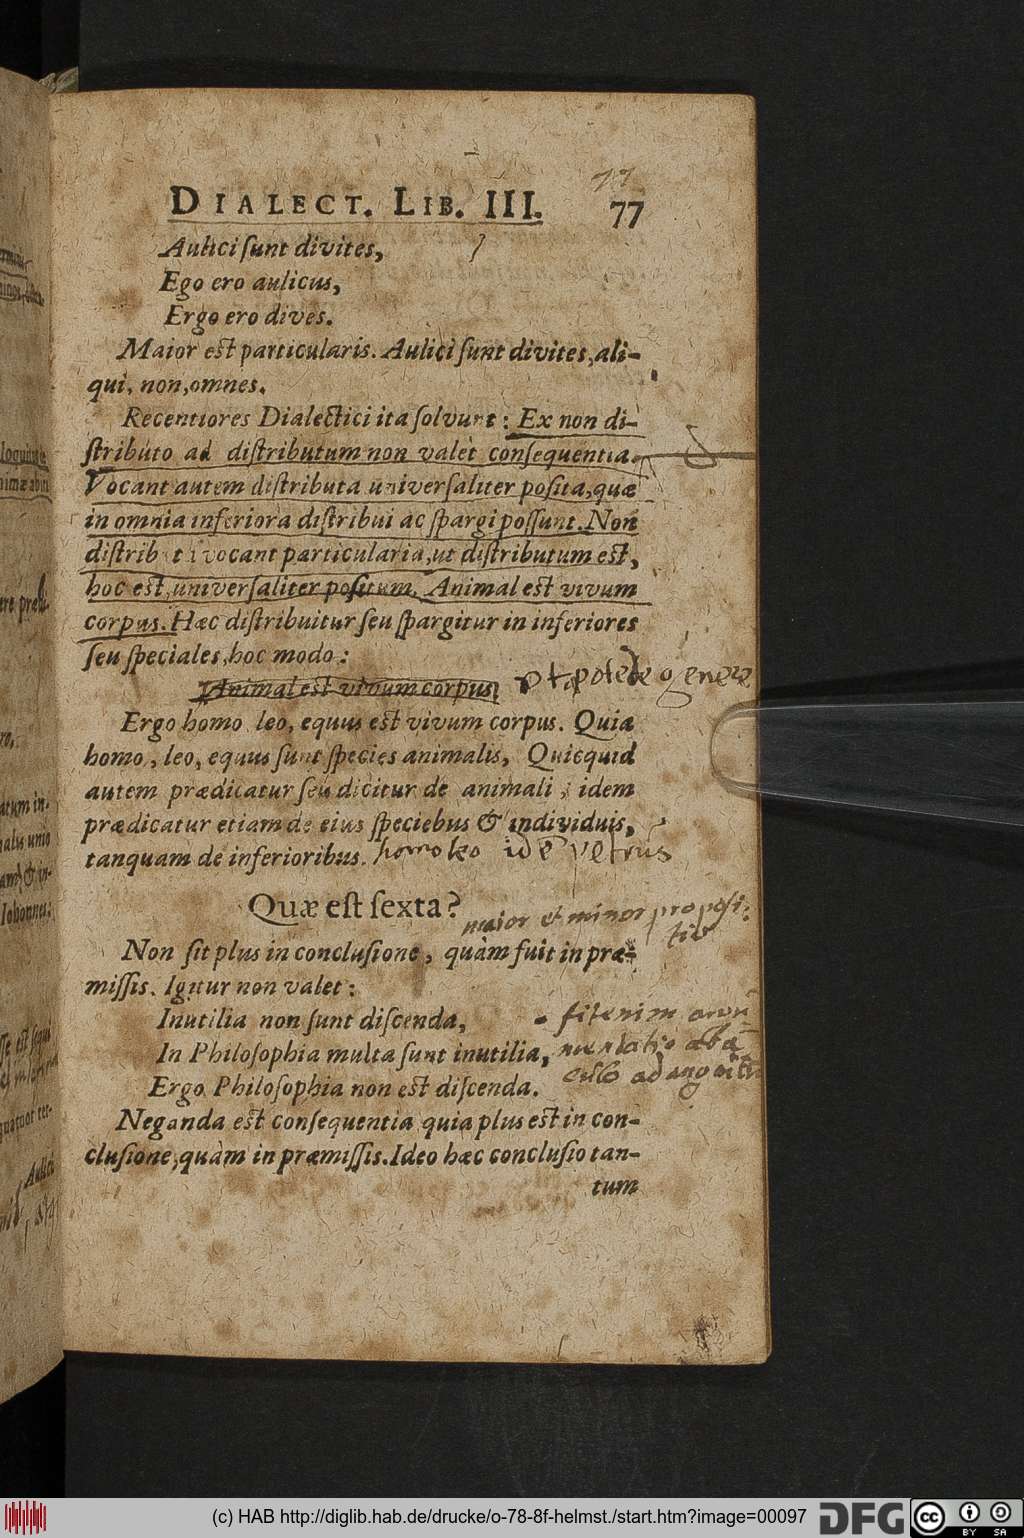 77
DIALECT. LIB. III. 77
Aulici sunt divites,
Ego ero aulicus,
Ergo ero dives.
Maior est particularis. Aulici sunt divites, ali-
qui, non, omnes.
Recentiores Dialectici ita solvunt: Ex non di-
stributo ad distributum non valet consequentia.
Vocant autem distributa universaliter posita, quæ
in omnia inferiora distribui ac spargi possunt. Non
distributa vocant particularia, ut distributum est,
hoc est, universaliter positum. Animal est vivum
corpus. Hæc distribuitur seu spargitur in inferiores
seu speciales, hoc modo:
Animal est vivum corpus,
Ergo homo, leo, equus est vivum corpus. Quia
homo, leo, equus sunt species animalis, Quicquid
autem prædicatur seu dicitur de animali, idem
prædicatur etiam de eius speciebus & individuis,
tanquam de inferioribus. homo leo
Quæ est sexta?
maior et minor proposi-
tio
Non sit plus in conclusione, quàm fuit in præ-
missis. Igitur non valet:
Inutilia non sunt discenda,
In Philosophia multa sunt inutilia,
Ergo Philosophia non est discenda.
Neganda est consequentia quia plus est in con-
clusione, quàm in præmissis. Ideo hæc conclusio tan-
tum
(c) HAB http://diglib.hab.de/drucke/o-78-8f-helmst./start.htm?image=00097 DFG cc BY SA